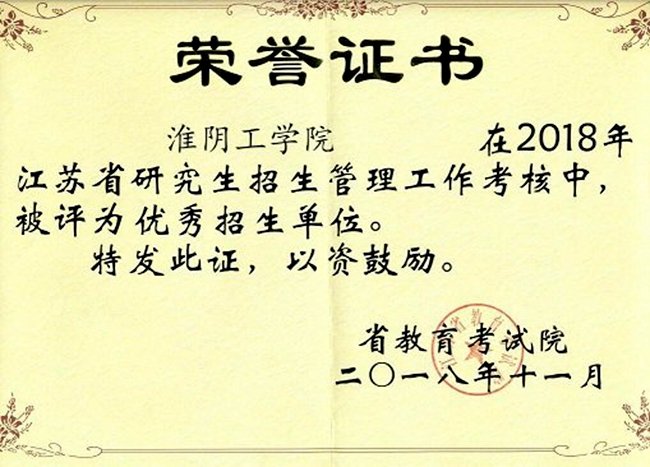 荣誉证书
淮阴工学院 在2018年
江苏省研究生招生管理工作考核中，
被评为优秀招生单位。
特发此证，以资鼓励。
省教育考试院
二〇一八年十一月